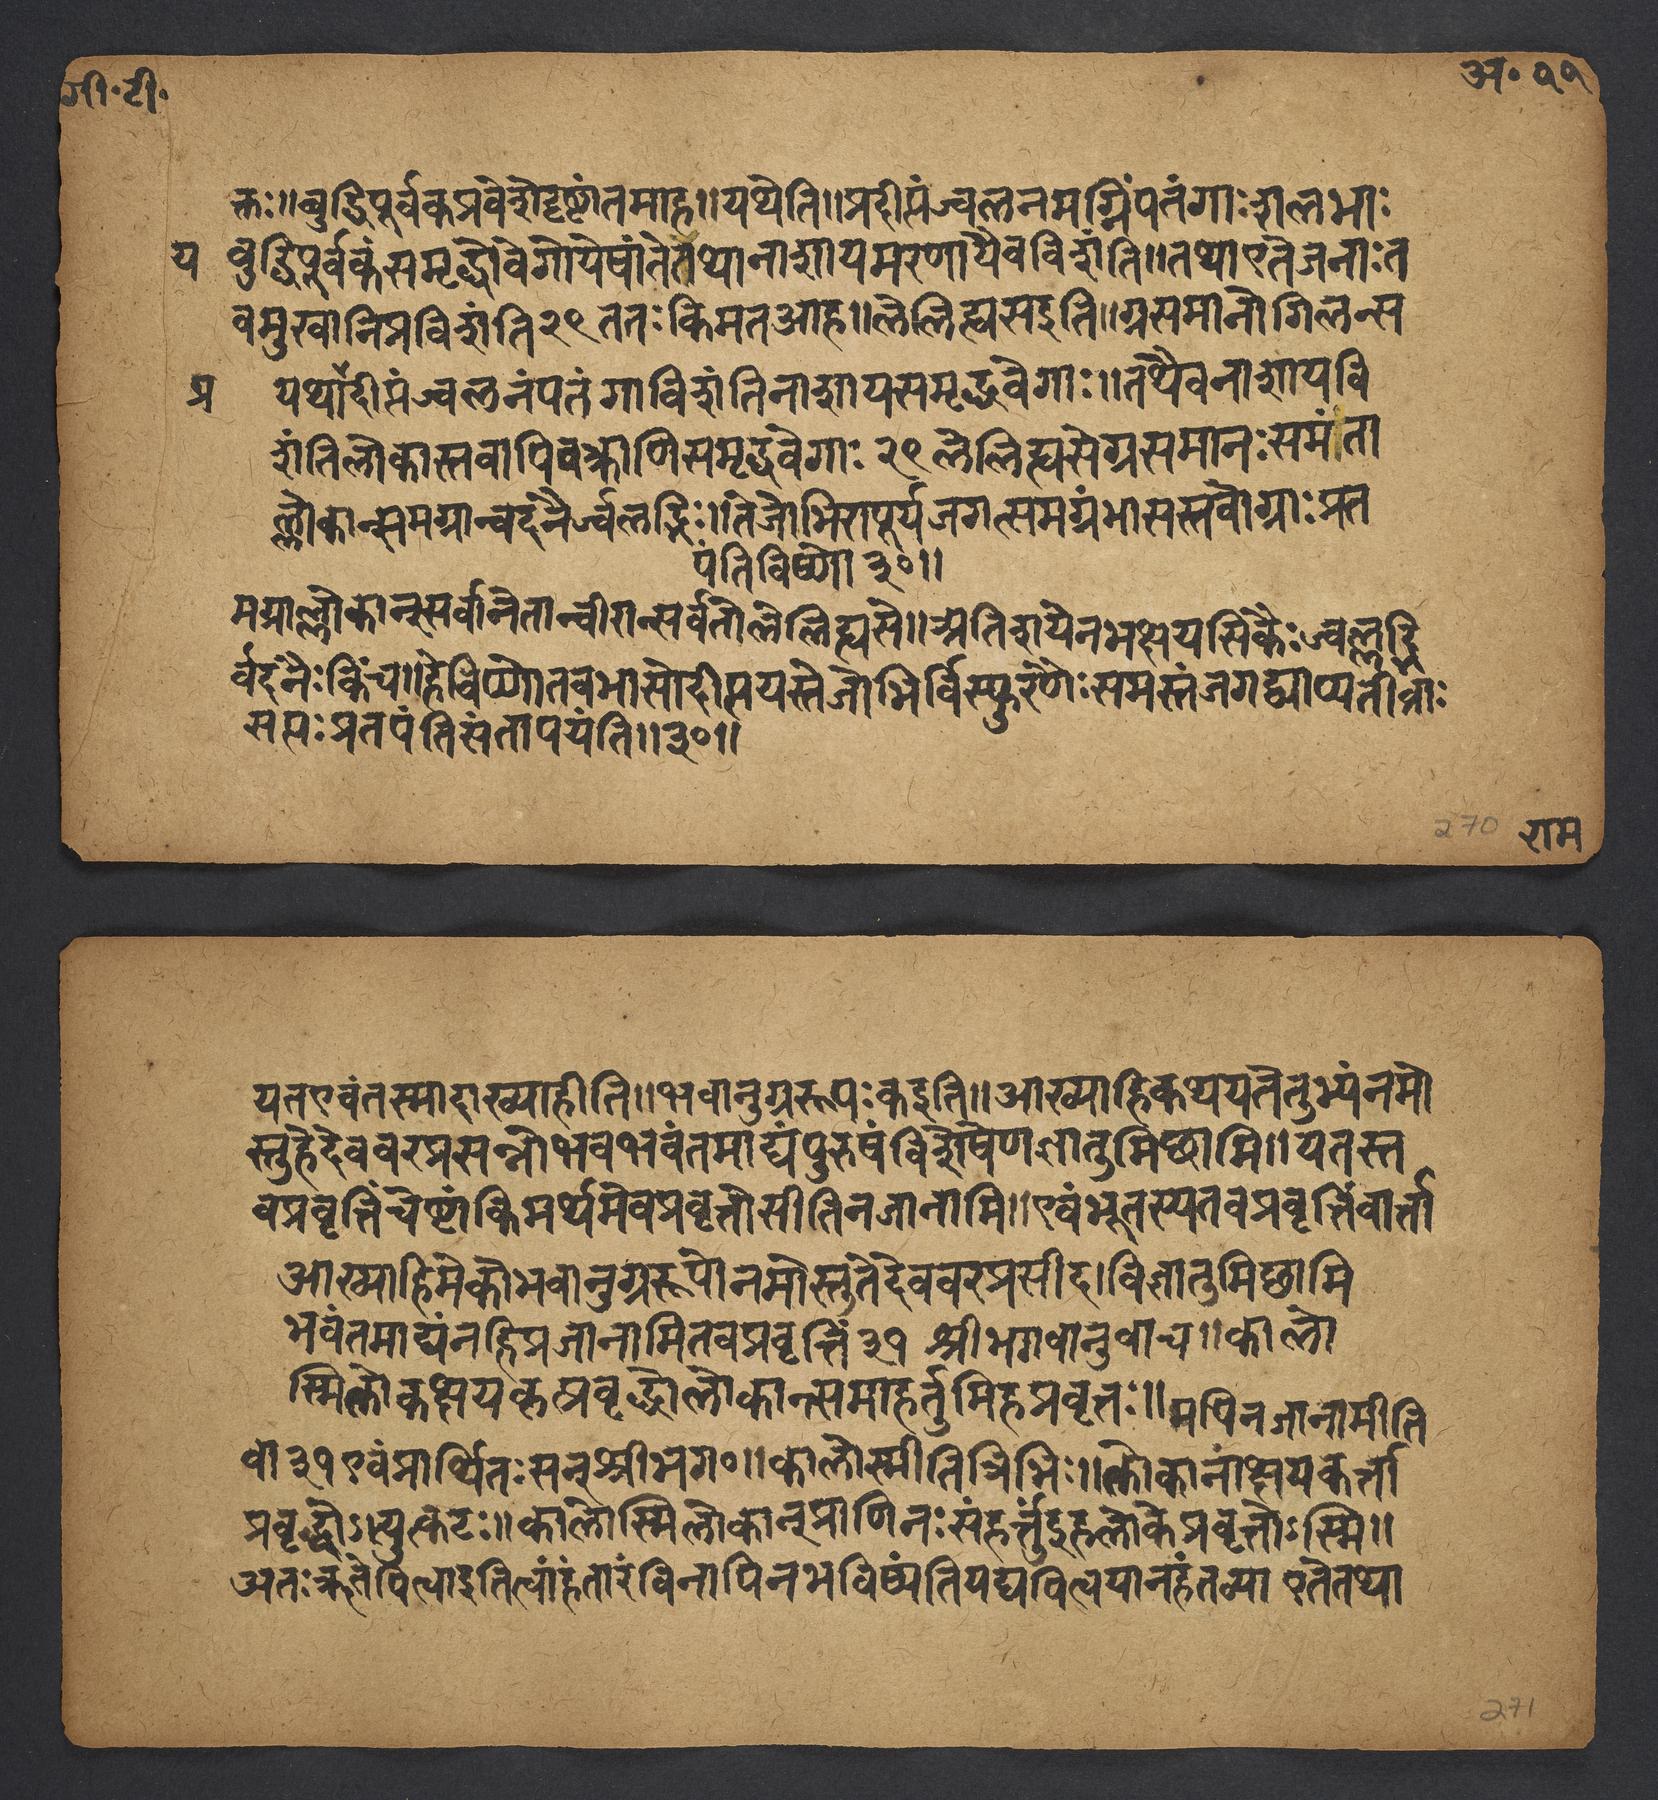 गी॰टी॰
अ॰ ११
क्तः॥बुद्धिपूर्वकप्रवेशेदृष्टांतमाह॥यथेति॥प्रदीप्तंज्वलनमग्निंपतंगाःशलभाः
य बुद्धिपूर्वकंसमृद्धोवेगोयेषांतेतेथानाशायमरणायैवविशंति॥तथाएतेजनाःत
वमुखानिप्रविशंति२९ ततःकिमतआह॥लेलिह्यसइति॥ग्रसमानोगिलन्स
प्र यथादीप्तंज्वलनंपतंगाविशंतिनाशायसमृद्धवेगाः॥तथैवनाशायवि
शंतिलोकास्तवापिवक्त्राणिसमृद्धवेगाः २९ लेलिह्यसेग्रसमानःसमंता
ल्लोकान्समग्रान्वदनैर्ज्वलद्भिः॥तेजोभिरापूर्यजगत्समग्रंभासस्तवोग्राःप्रत
पंतिविष्णो ३०॥
मग्राल्लोकान्सर्वानेतान्वीरान्सर्वतोलेलिह्यसे॥अतिशयेनभक्षयसिकैःज्वलद्भि
र्वदनैःकिंच॥हेविष्णोतवभासोदीप्तयस्तेजोभिर्विस्फुरणैःसमस्तंजगद्व्याप्यतीव्राः
सत्यःप्रतपंतिसंतापयंति॥३०॥
270 राम
यतएवंतस्मादाख्याहीति॥भवानुग्ररूपःकइति॥आख्याहिकथययतेतुभ्यंनमो
स्तुहेदेववरप्रसन्नोभवभवंतमाद्यंपुरुषंविशेषेणज्ञातुमिछामि॥यतस्त
वप्रवृत्तिंचेष्टांकिमर्थमेवप्रवृत्तोसीतिनजानामि॥एवंभूतस्यतवप्रवृत्तिंवार्त्ता
आख्याहिमेकोभवानुग्ररूपोनमोस्तुतेदेववरप्रसीद।विज्ञातुमिछामि
भवंतमाद्यंनहिप्रजानामितवप्रवृत्तिं ३१ श्रीभगवानुवाच॥कालो
स्मिलोकक्षयकृत्प्रवृद्धोलोकान्समाहर्तुमिहप्रवृत्तः॥
मपिनजानामीति
वा ३१ एवंप्रार्थितःसन्श्रीभग॰॥कालोस्मीतित्रिभिः॥लोकानांक्षयकर्त्ता
प्रवृद्धोऽत्युत्कटः॥कालोस्मिलोकान्प्राणिनःसंहर्त्तुंइहलोकेप्रवृत्तोऽस्मि॥
अतःऋतेपित्वाइतित्वांहंतारंविनापिनभविष्यंतियद्यपित्वयानहंतव्या एतेतथा
271